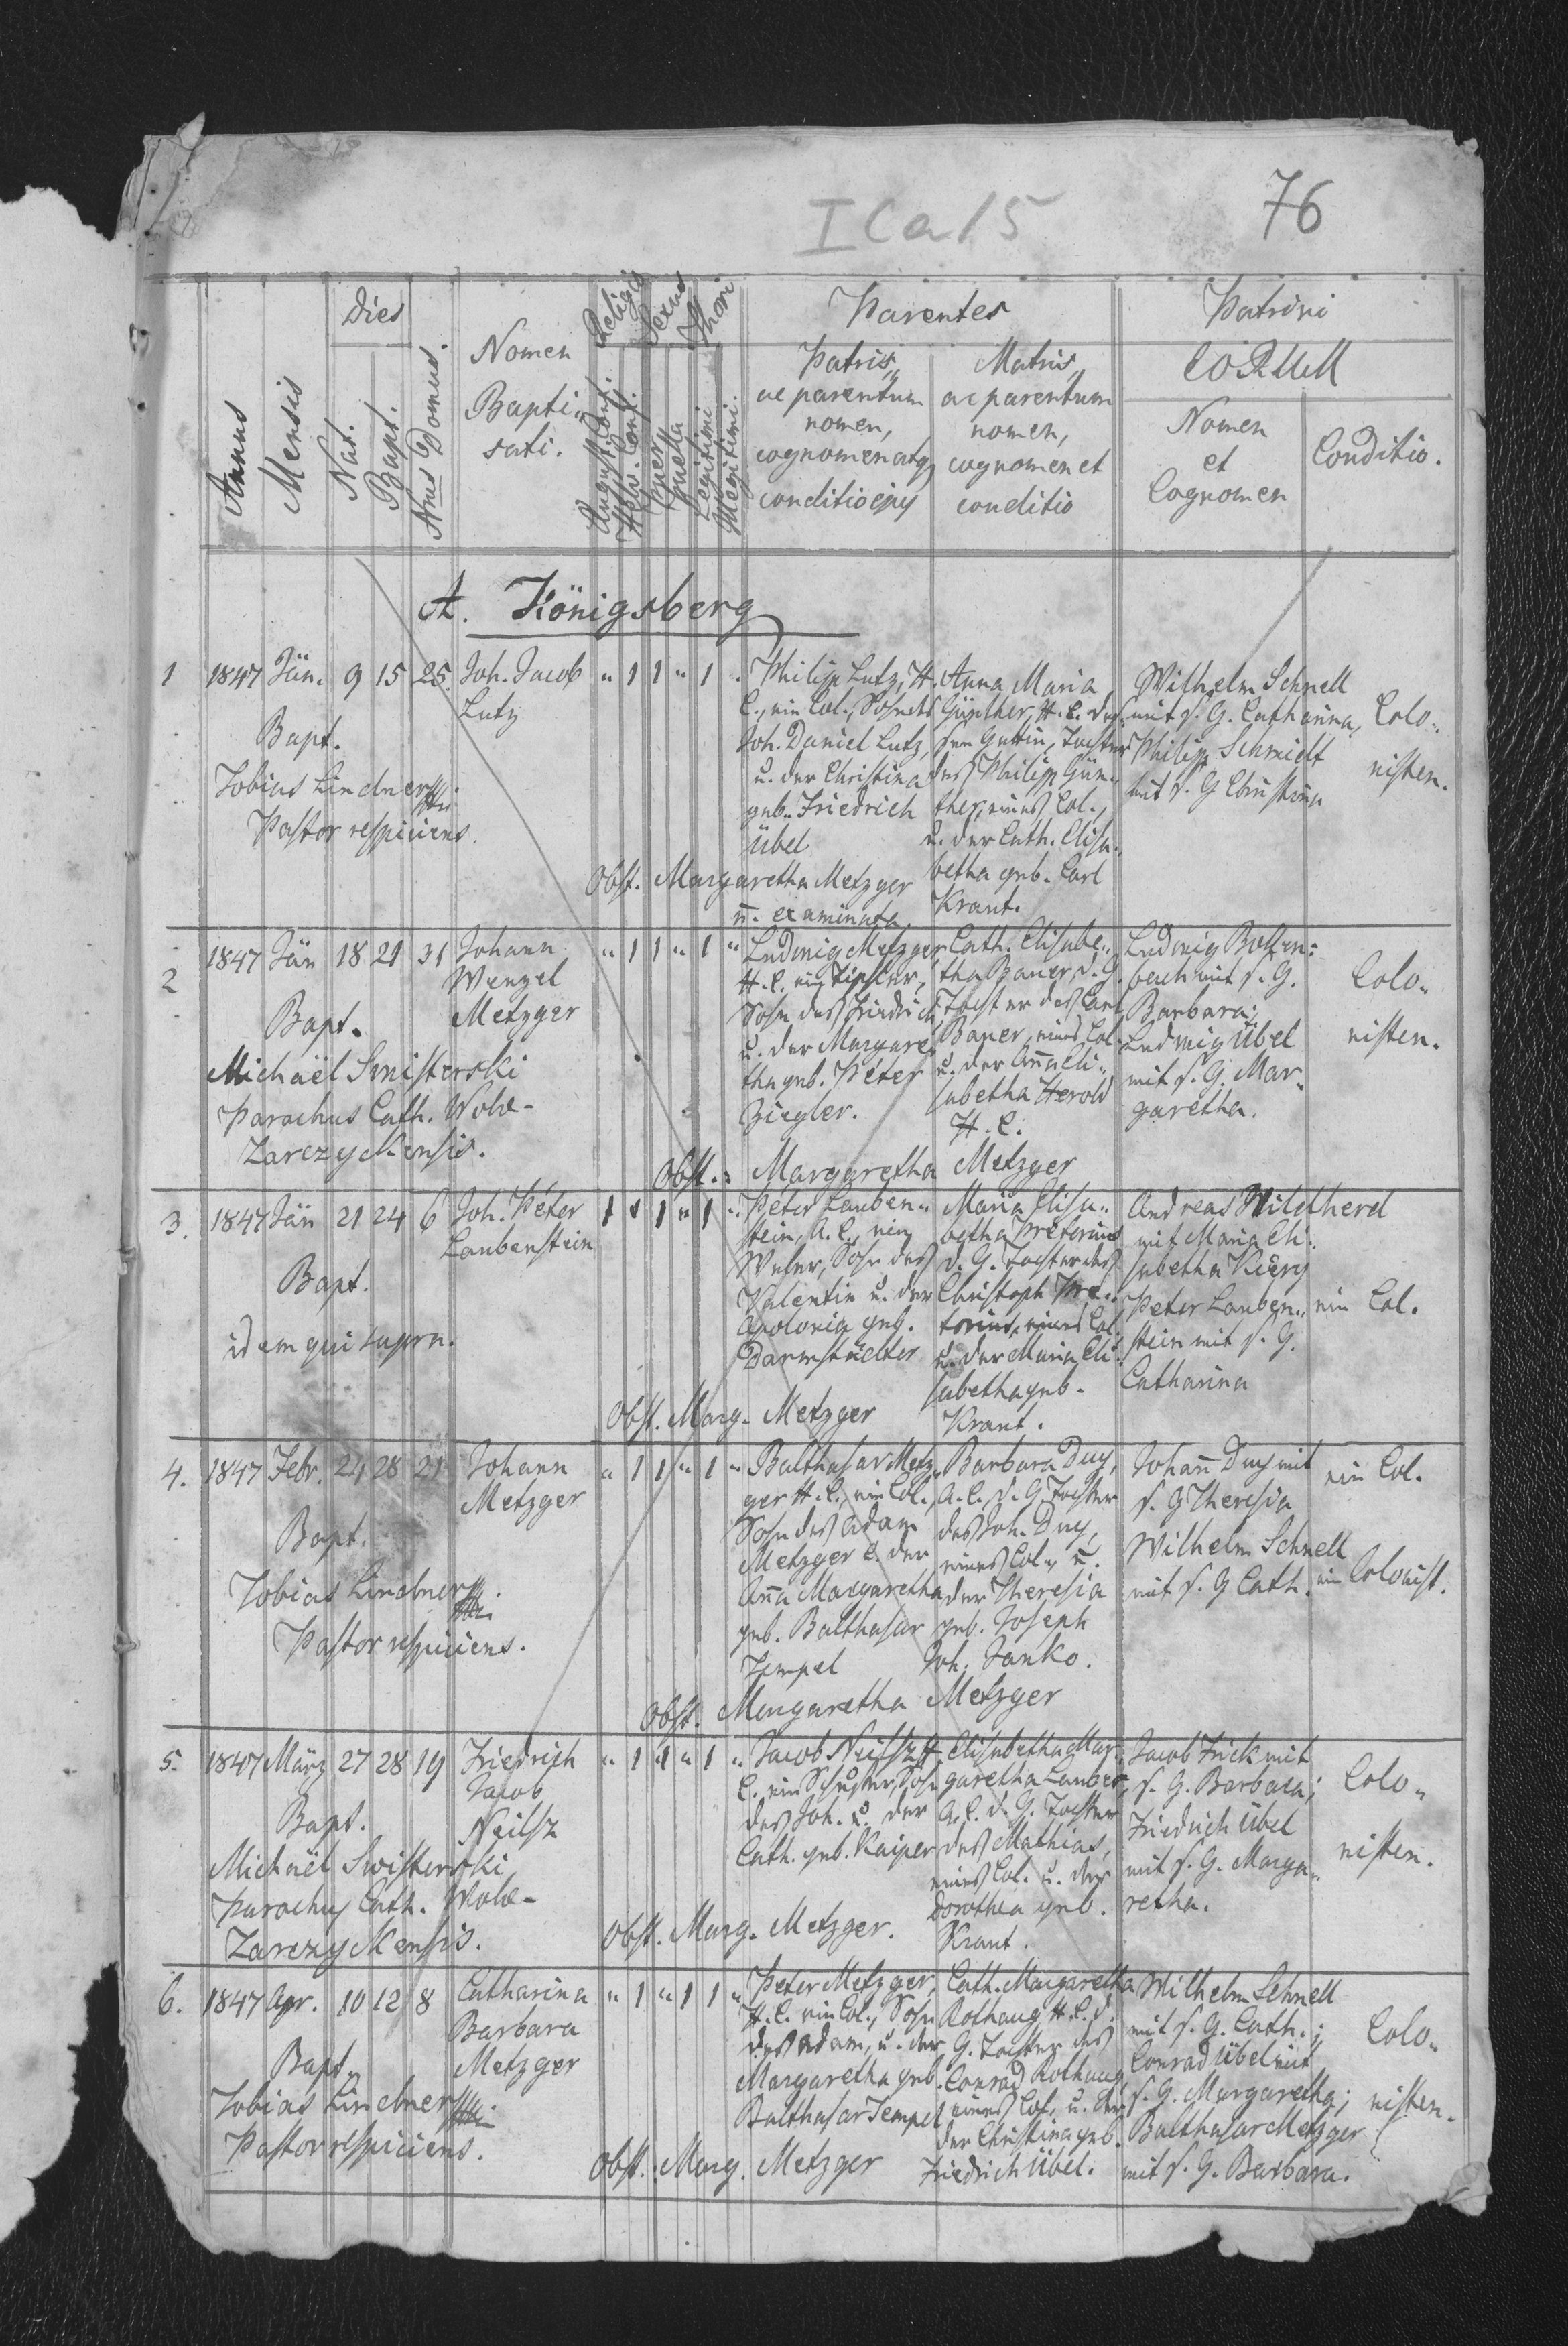 I C a 15
76
Annus
Mensis
Dies
Nat.
Bapt.
Nrus Domus.
Nomen
Bapti-
sati.
Religio
August. Conf.
Helv. Conf.
Sexus
Puer
Puella
Thori
Legitimi
Illegitimi.
Parentes
Patris,
ac parentum
nomen,
cognomen atq
conditio ejus
Matris,
ac parentum
nomen,
cognomen et
conditio
Patrini
eorum
Nomen
et
Cognomen
Conditio.
A. Königsberg
1 1847 Jän. 9 15 25. Joh. Jacob " 1 1 " 1 "
Lutz
Bapt.
Tobias Lindner
Pastor respiciens.
Philipp Lutz, H.
C., ein Col., Sohn des
Joh. Daniel Lutz,
u. der Christina
geb. Friedrich
Übel
Anna Maria
Günther, H. C. des-
sen Gattin, Tochter
des Philipp Gün-
ther, eines Col.,
u. der Cath. Elisa-
betha geb. Carl
Kraut.
Wilhelm Schnell
mit s. G. Catharina,
Philipp Schmidt
mit s. G. Christina
Colo-
nisten.
Obst. Margaretha Metzger
n. examinata
2 1847 Jän 18 21 31 Johann " 1 1 " 1 "
Wenzel
Metzger
Bapt.
Michaël Swisterski
Parochus Cath. Wola-
Zarczyckensis.
Ludwig Metzger
H. C. ein Tischler,
Sohn des Friedrich
u. der Margare-
tha geb. Peter
Ziegler.
Cath. Elisabe-
tha Bauer, d. G.
Tochter des Carl
Bauer, eines Col.
u. der Ana Eli-
sabetha Herold
H. C.
Ludwig Bollen-
bach mit s. G.
Barbara;
Ludwig Übel
mit s. G. Mar-
garetha.
Colo-
nisten.
Obst.: Margaretha Metzger
3. 1847 Jän 21 24 6 Joh. Peter 1 " 1 " 1 "
Laubenstein
Bapt.
idem qui supra.
Peter Lauben-
stein, A. C., ein
Weber, Sohn des
Valentin u. der
Apolonia geb.
Darmstädter
Maria Elisa-
betha Pretorius
d. G. Tochter des
Christoph Pre-
torius, eines Col.
u. der Maria Eli-
sabetha geb.
Kraut.
Andreas Wildtherd
mit Maria Eli-
sabetha
Peter Lauben-
stein mit s. G.
Catharina
ein Col.
Obst. Marg. Metzger
4. 1847 Febr. 24 28 21 Johann " 1 1 " 1 "
Metzger
Bapt.
Tobias Lindner
Pastor respiciens.
Balthasar Metz-
ger H. C., ein Col.,
Sohn des Adam
Metzger u. der
Ana Margaretha
geb. Balthasar
Tempel
Barbara Duy,
A. C. d. G. Tochter
des Joh. Duy,
eines Col., u.
der Theresia
geb. Joseph
Joh. Janko.
Johan Duy mit
s. G Theresia
Wilhelm Schnell
mit s. G Cath.
ein Col.
ein Colonist.
Obst. Margaretha Metzger
5. 1847 März 27 28 19 Friedrich " 1 1 " 1 "
Jacob
Neilsz
Bapt.
Michaël Swisterski
Parochus Cath. Wola-
Zarczyckensis.
Jacob Neilsz H.
C. ein Schuster, Sohn
des Joh. u. der
Cath. geb. Kaiper
Elisabetha Mar-
garetha Lauber,
A. C. d. G. Tochter
des Mathias,
eines Col. u. der
Dorothea geb.
Kraut.
Jacob Frick mit
s. G. Barbara;
Friedrich Übel
mit s. G. Marga-
retha.
Colo-
nisten.
Obst. Marg. Metzger.
6. 1847 Apr. 10 12 8 Catharina " 1 " 1 1 "
Barbara
Metzger
Bapt.
Tobias Lindner
Pastor respiciens.
Peter Metzger,
H. C. ein Col., Sohn
des Adam, u. der
Margaretha geb.
Balthasar Tempel
Cath. Margaretha
Rothaug H. C. d.
G. Tochter des
Conrad Rothaug,
eines Col. u. der
der Christina geb.
Friedrich Übel.
Wilhelm Schnell
mit s. G. Cath.;
Conrad Übel mit
s. G. Margaretha;
Balthasar Metzger
mit s. G. Barbara.
Colo-
nisten.
Obst. Marg. Metzger